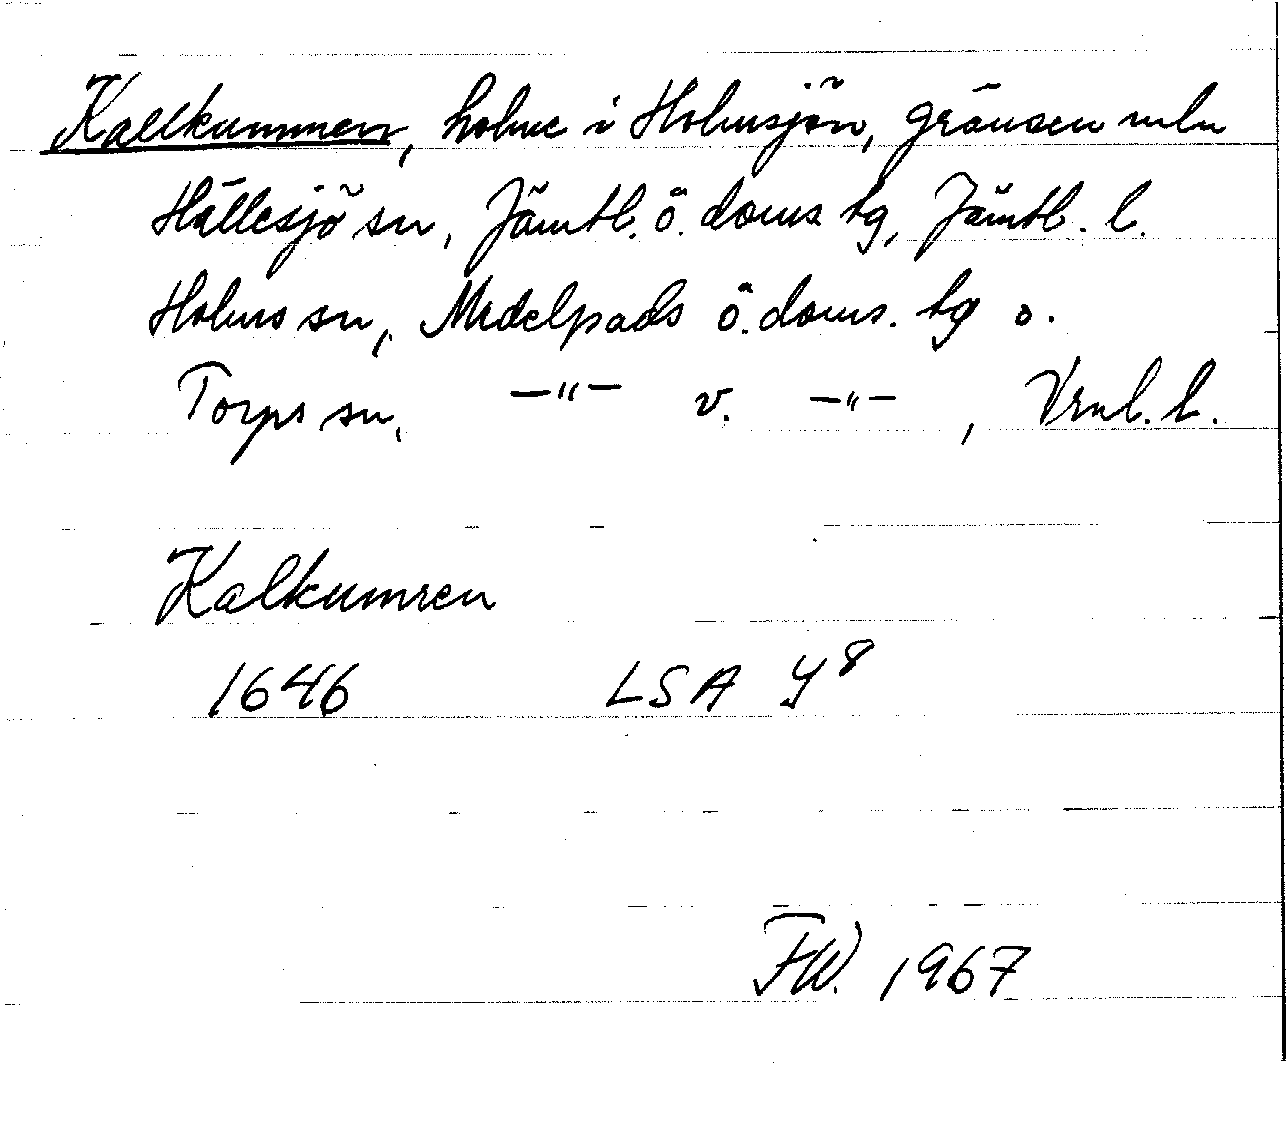 Kallkummen, holme i Holmsjön, gränsen mln
Hällesjö sn, Jämtl. ö. doms. tg, Jämtl. l.
Holms sn, Medelpads ö. doms. tg o.
Torps sn, —"— v. —"—, Vrnl. l.
Kalkumren
1646 LSA Y8
FW. 1967